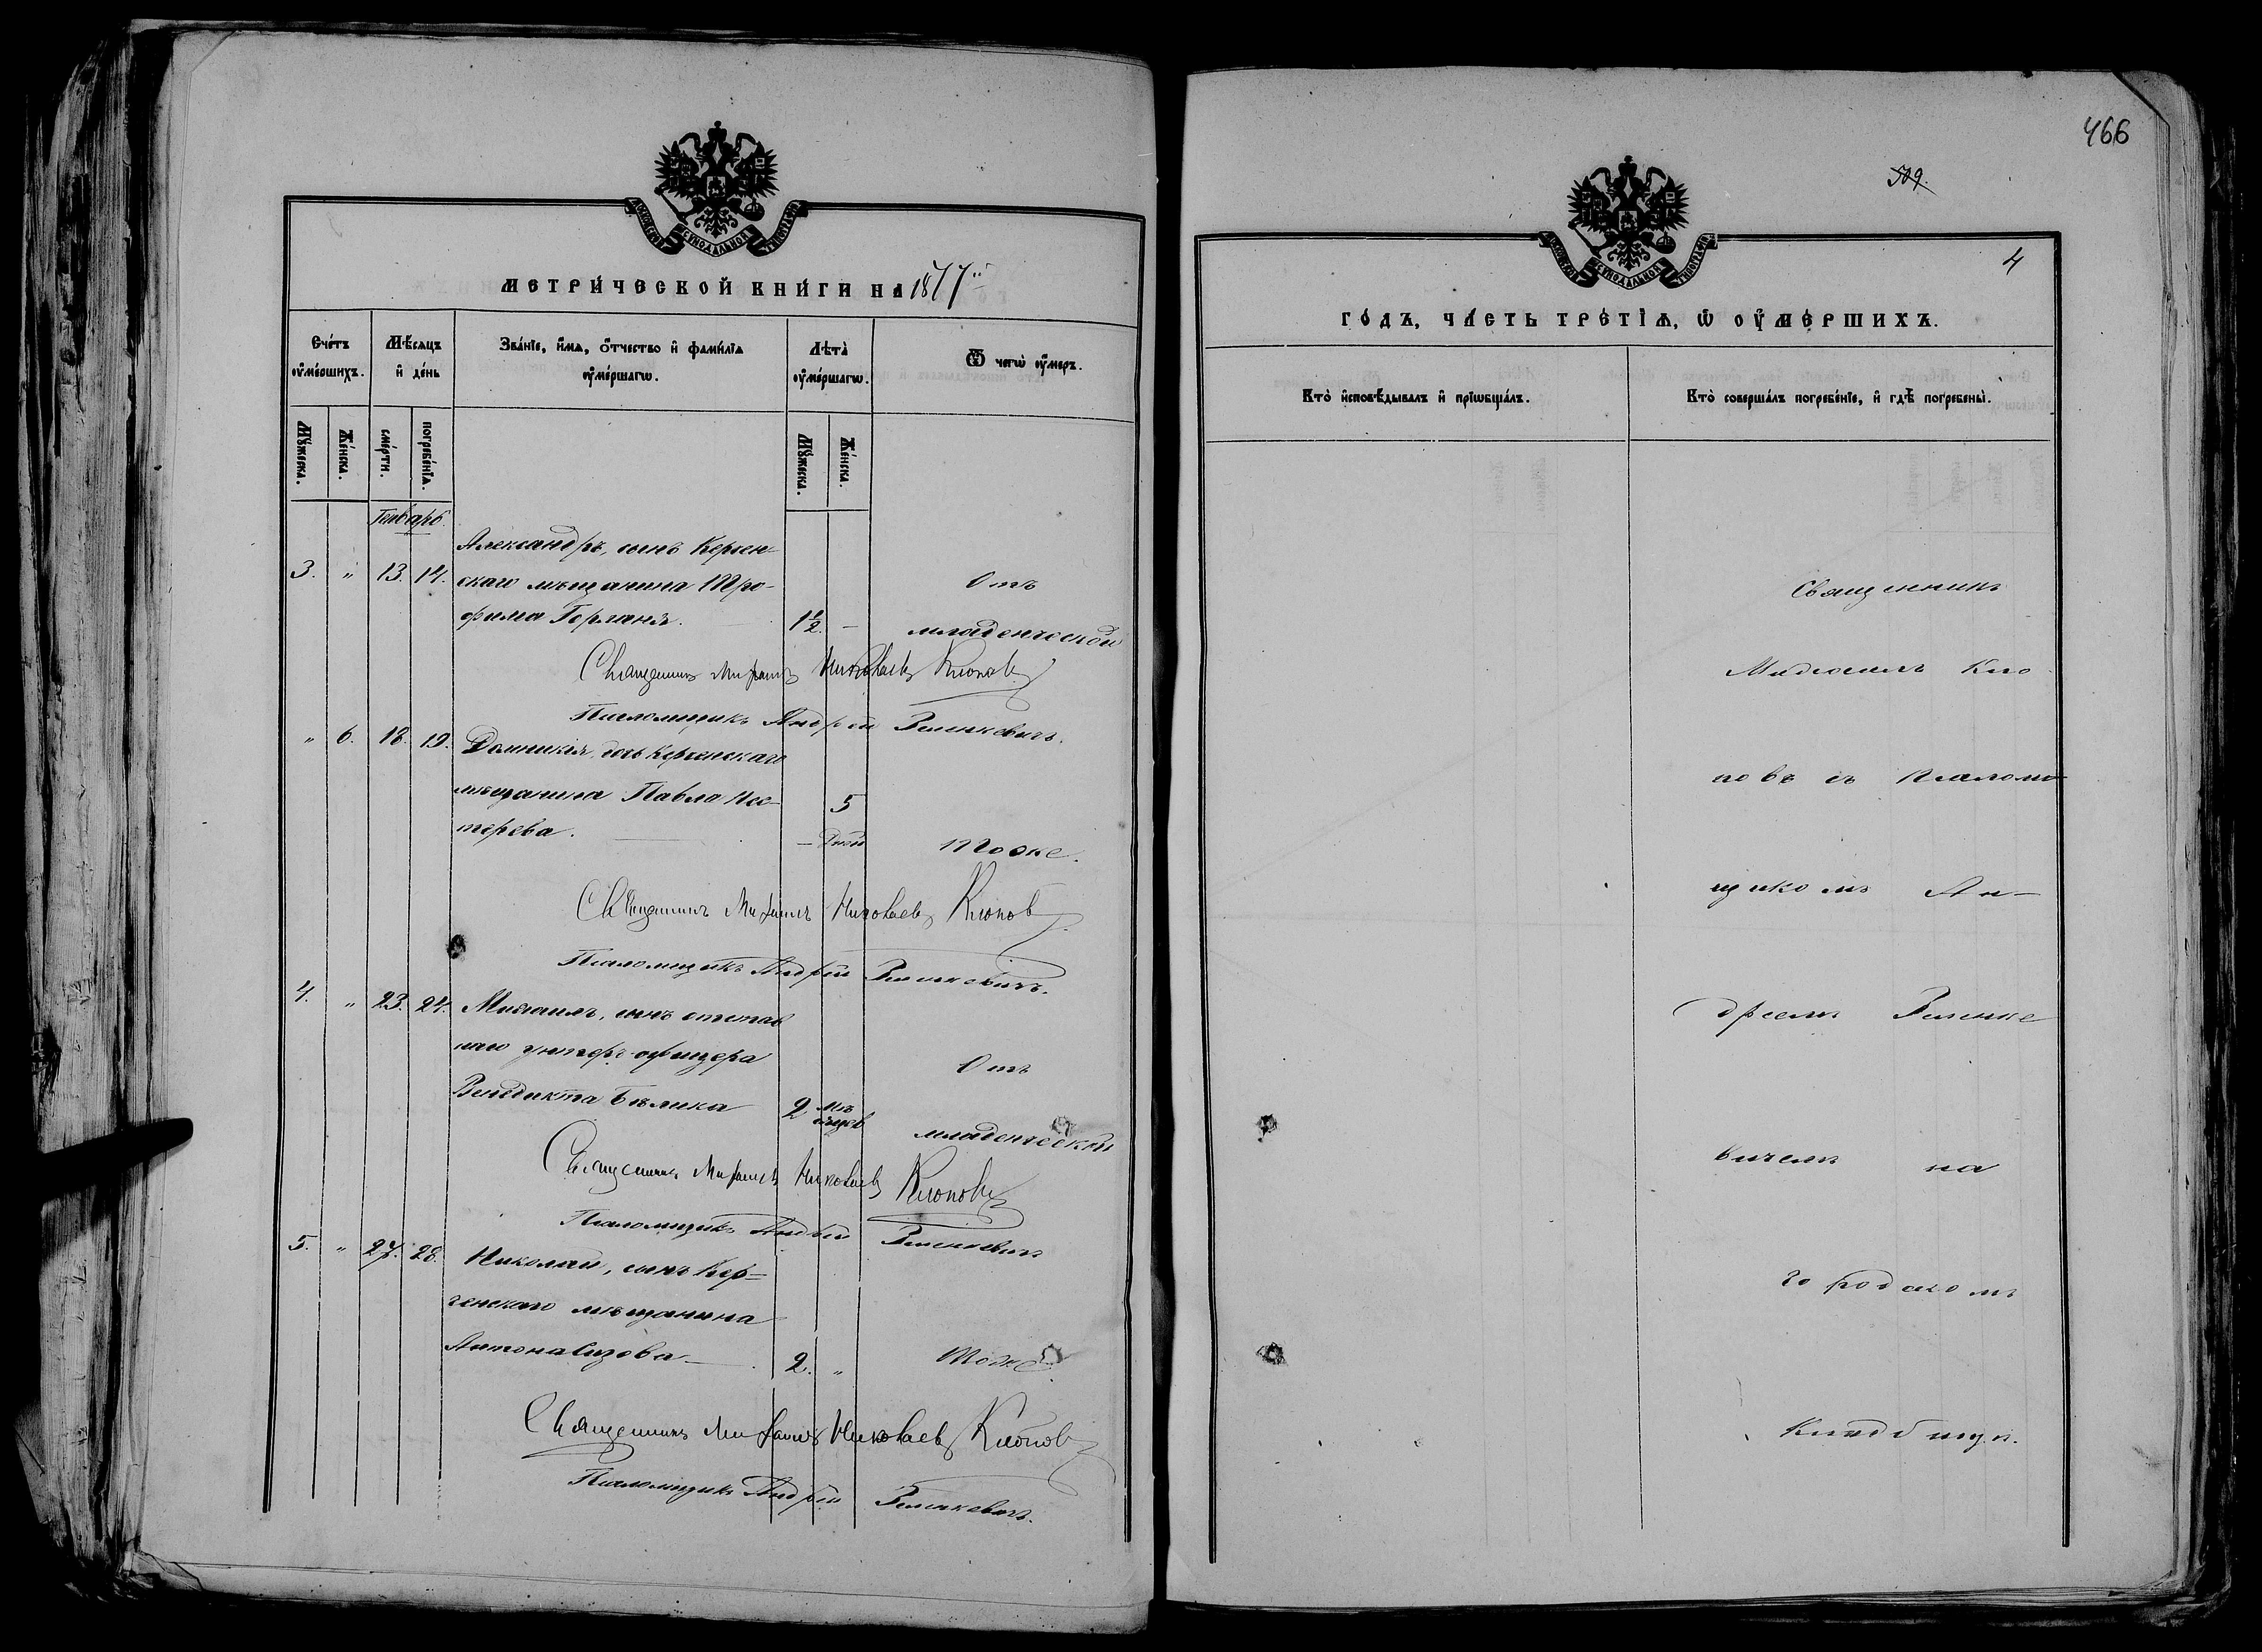 МОСКОВСКОЙ СѴНОДАЛЬНОЙ ТИПОГРАФІИ
МЕТРИ́ЧЕСКОЙ КНИ́ГИ НА 1877й
Сче́тъ ᲂу҆ме́ршихъ.
Мѣ́сѧцъ и҆ де́нь
Зва́нїе, и҆́мѧ, ѻ҆́тчество и҆ фамѝлїѧ ᲂу҆ме́ршагѡ.
Лѣта̀ ᲂу҆ме́ршагѡ.
Ѿ чегѡ̀ ᲂу҆́меръ.
Мꙋ́жеска.
Же́нска.
сме́рти.
погребе́нїѧ.
Мꙋ́жеска.
Же́нска.
Генварь.
Александръ, сынъ Керчен-
3. " 13. 14. скаго мѣщанина Тро- Отъ
фима . 1½. — младенческой
Священникъ Михаилъ Николаевъ Клоповъ
Псаломщикъ Андрей Зеленкевичъ.
" 6. 18. 19. Домникія, дочь Керченскаго
мѣщанина Павла Нес- 5
терева. — дней Тоже.
Священникъ Михаилъ Николаевъ Клоповъ
Псаломщикъ Андрей Зеленкевичъ.
4. " 23. 24. Михаилъ, сынъ отстав
наго унтеръ-офицера Отъ
Венедикта Бѣлика 2 мѣсяцев младенческой
Священникъ Михаилъ Николаевъ Клоповъ
Псаломщикъ Андрей Зеленкевичъ
5. " 27. 28. Николай, сынъ Кер-
ченскаго мѣщанина
Антона Сизова — 2. " Тоже.
Священникъ Михаилъ Николаевъ Клоповъ
Псаломщикъ Андрей Зеленкевичъ.
466
509.
4
МОСКОВСКОЙ СѴНОДАЛЬНОЙ ТИПОГРАФІИ
ГО́ДЪ, ЧА́СТЬ ТРЕ́ТЇѦ, Ѡ҆ ОУ҆МЕ́РШИХЪ.
Кто̀ и҆сповѣ́дывалъ и҆ прїѡбща́лъ.
Кто̀ соверша́лъ погребе́нїе, и҆ гдѣ̀ погребены̀.
Священникъ
Михаилъ Кло
повъ съ псалом-
щикомъ Ан-
дреемъ Зеленке
вичемъ на
городскомъ
кладбищѣ.